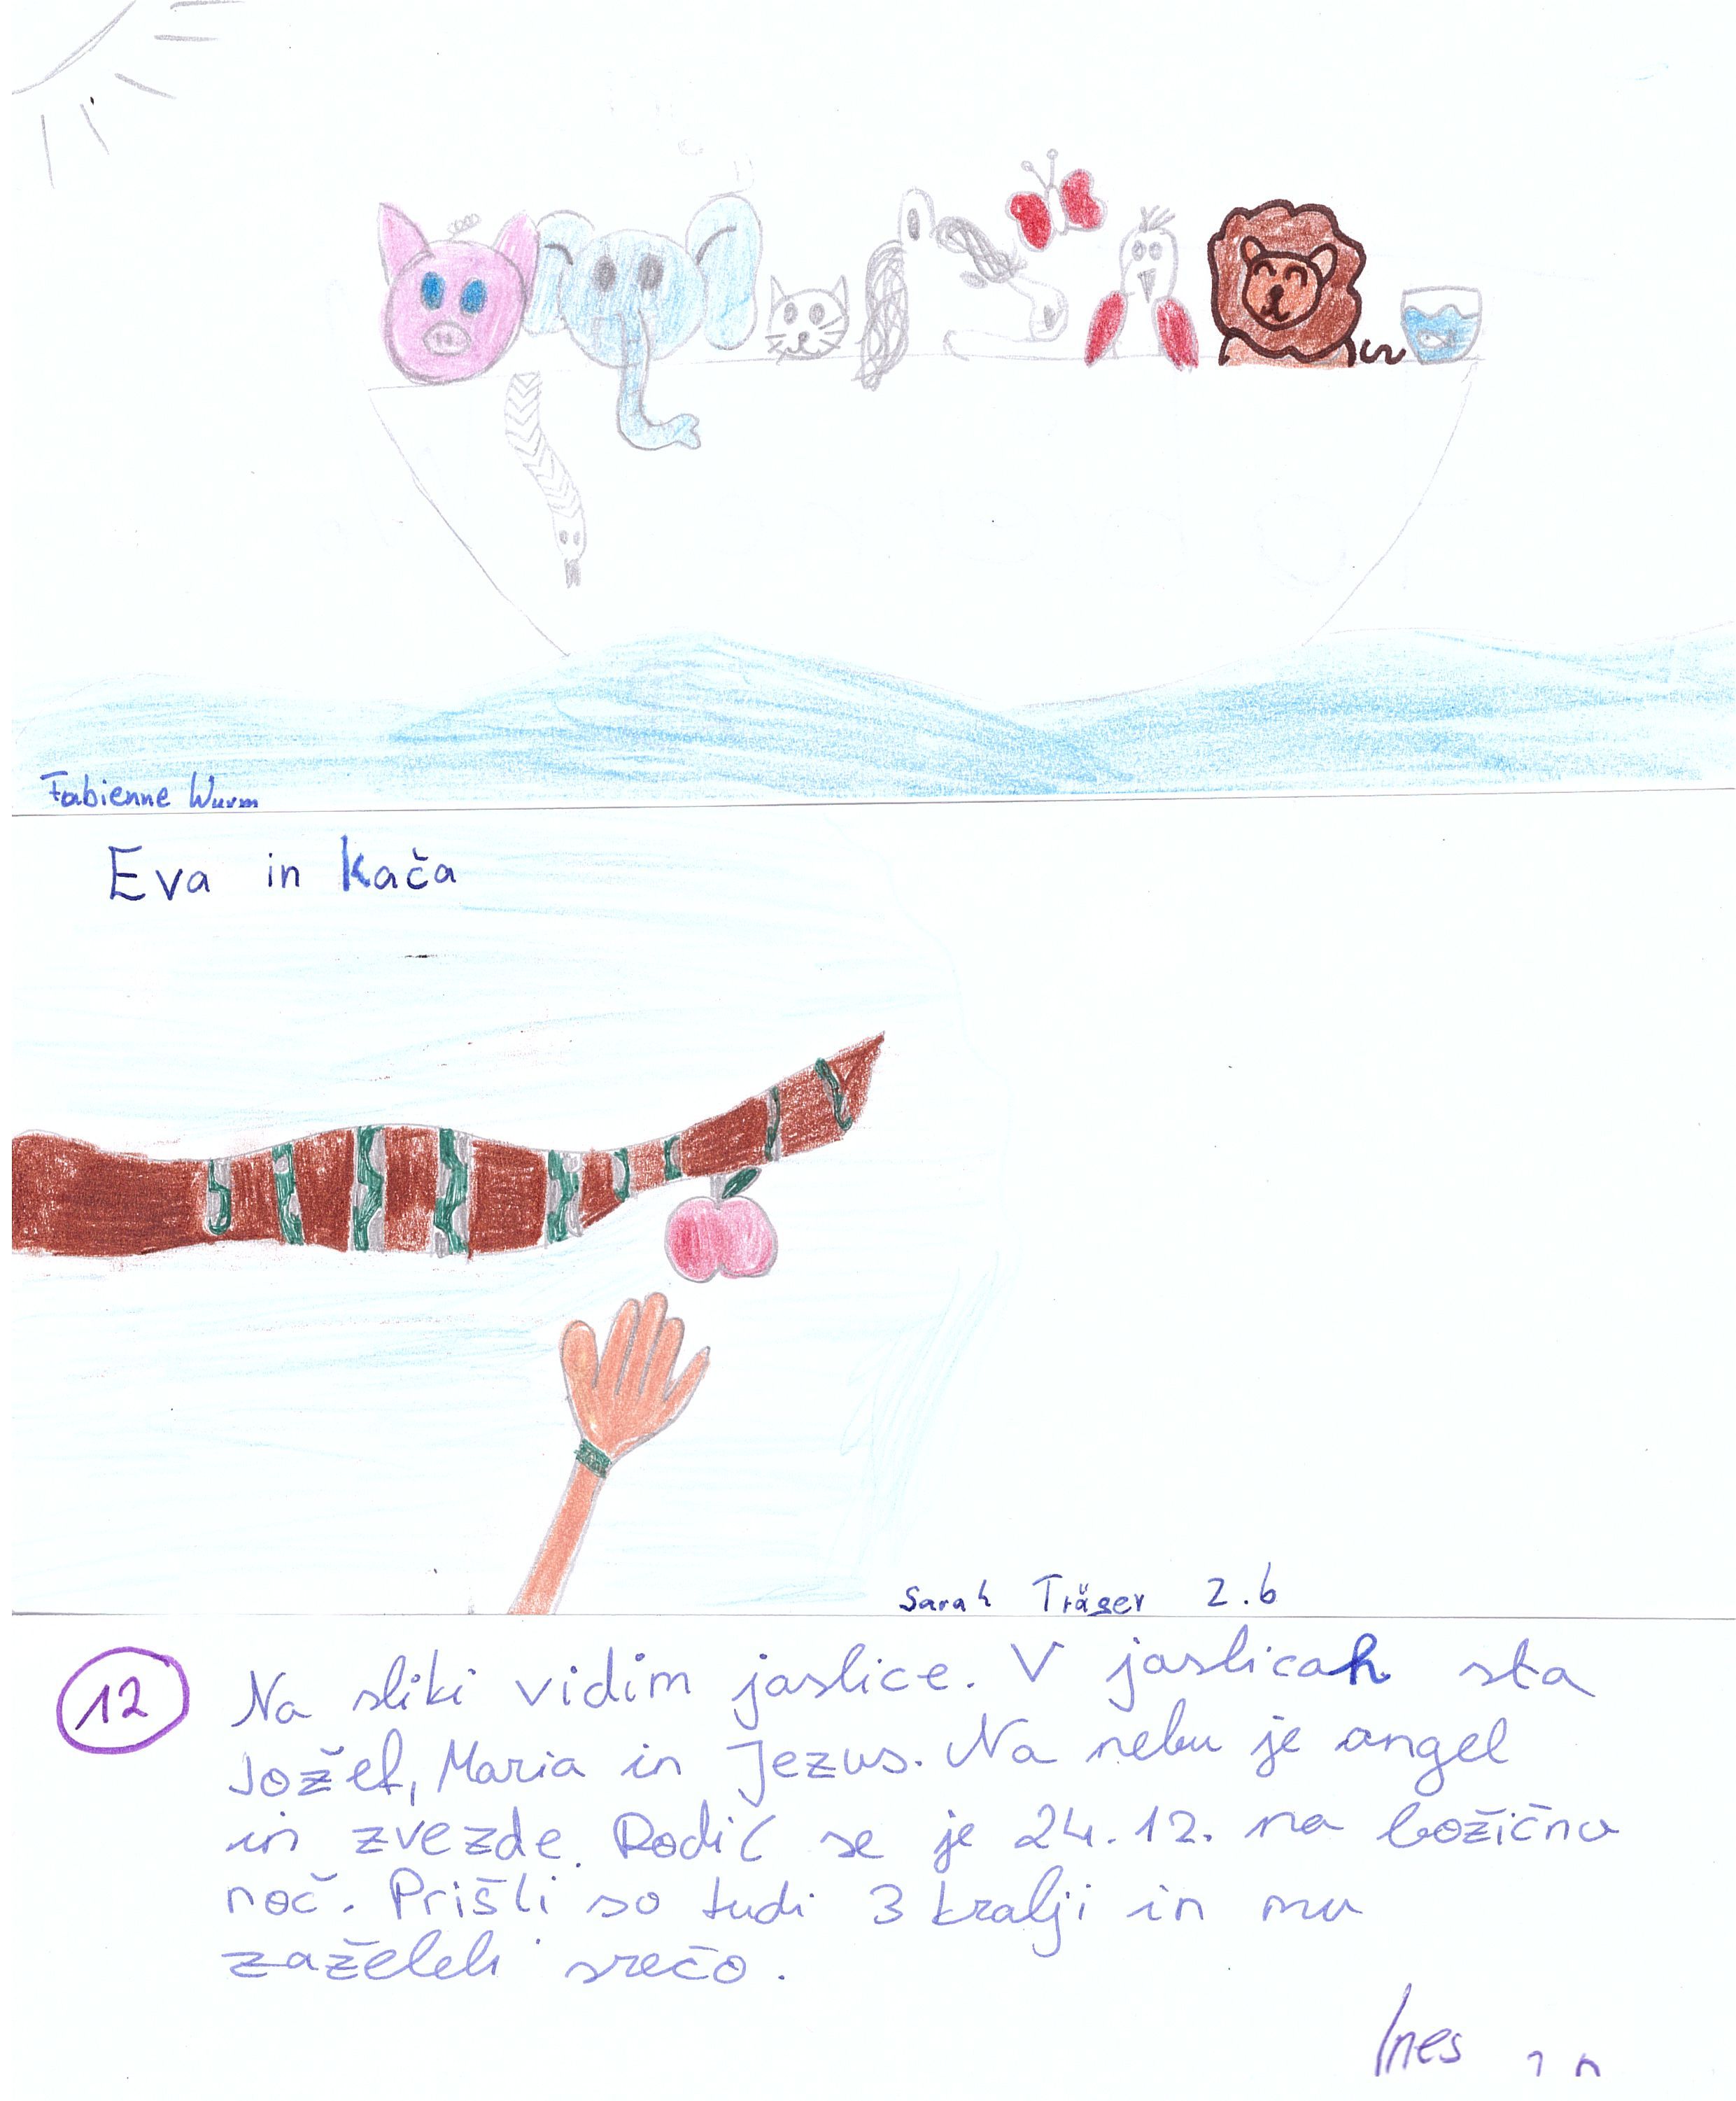 Fabienne Wurm
Eva in kača
Sarah Träger 2.b
12
Na sliki vidim jaslice. V jaslicah sta
Jožef, Maria in Jezus. Na nebu je angel
in zvezde. Rodil se je 24.12. na božično
noč. Prišli so tudi 3 kralji in mu
zaželeli srečo.
Ines